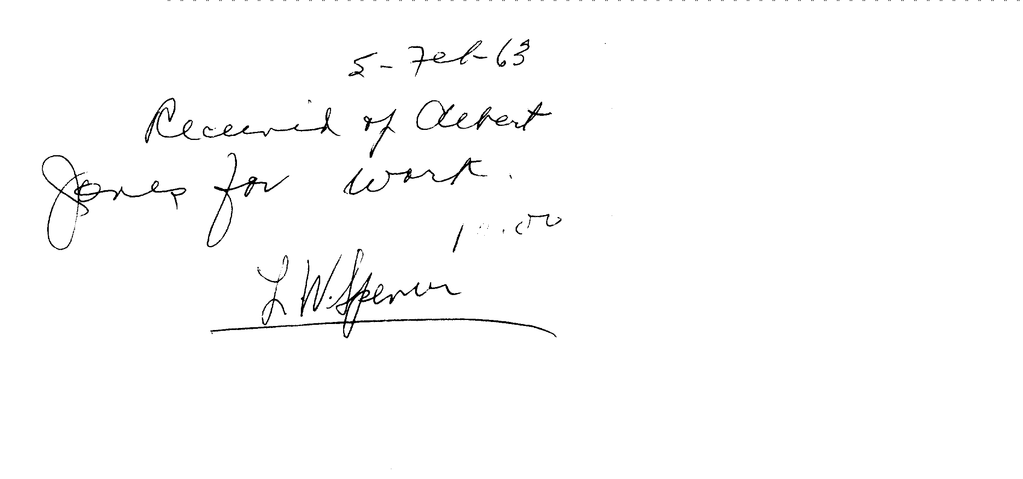 5-Feb-63
Received of Albert
Jones for work.
L W. Spencer